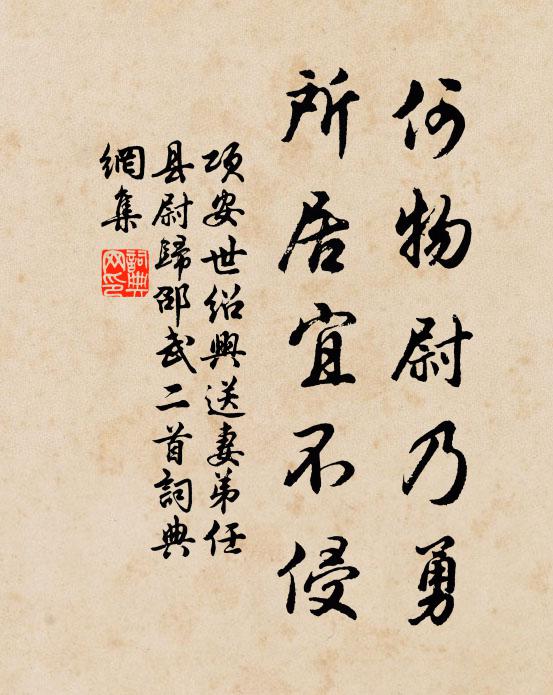 何物尉乃勇
所居宜不侵
项安世绍兴送妻弟任
县尉歸邵武二首詞典
網集
詞典網印